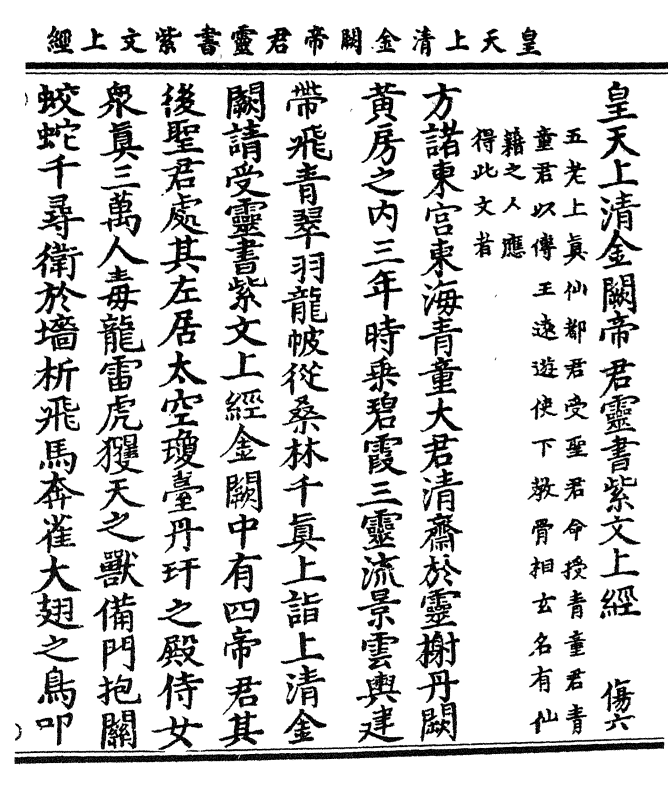 皇天上清金闕帝君靈書紫文上經
皇天上清金闕帝君靈書紫文上經 傷六
五老上眞仙都君受聖君命授青童君青
童君以傳王遠遊使下教骨相玄名有仙
籍之人應
得此文者
方諸東宮東海青童大君清齋於靈榭丹闕
黃房之內三年時乘碧霞三靈流景雲輿建
帶飛青翠羽龍帔從桑林千眞上詣上清金
闕請受靈書紫文上經金闕中有四帝君其
後聖君處其左居太空瓊臺丹玕之殿侍女
衆眞三萬人毒龍雷虎玃天之獸備門抱關
蛟蛇千尋衛於墻析飛馬奔雀大翅之鳥叩